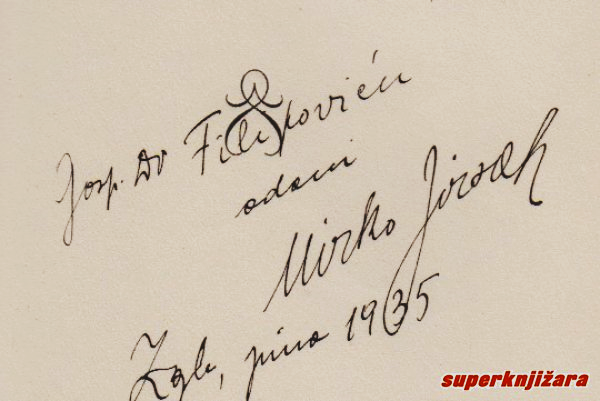 Gosp. Dr Filipoviću
odani
Mirko Jirsak
Zgb, juna 1935
superknjižara